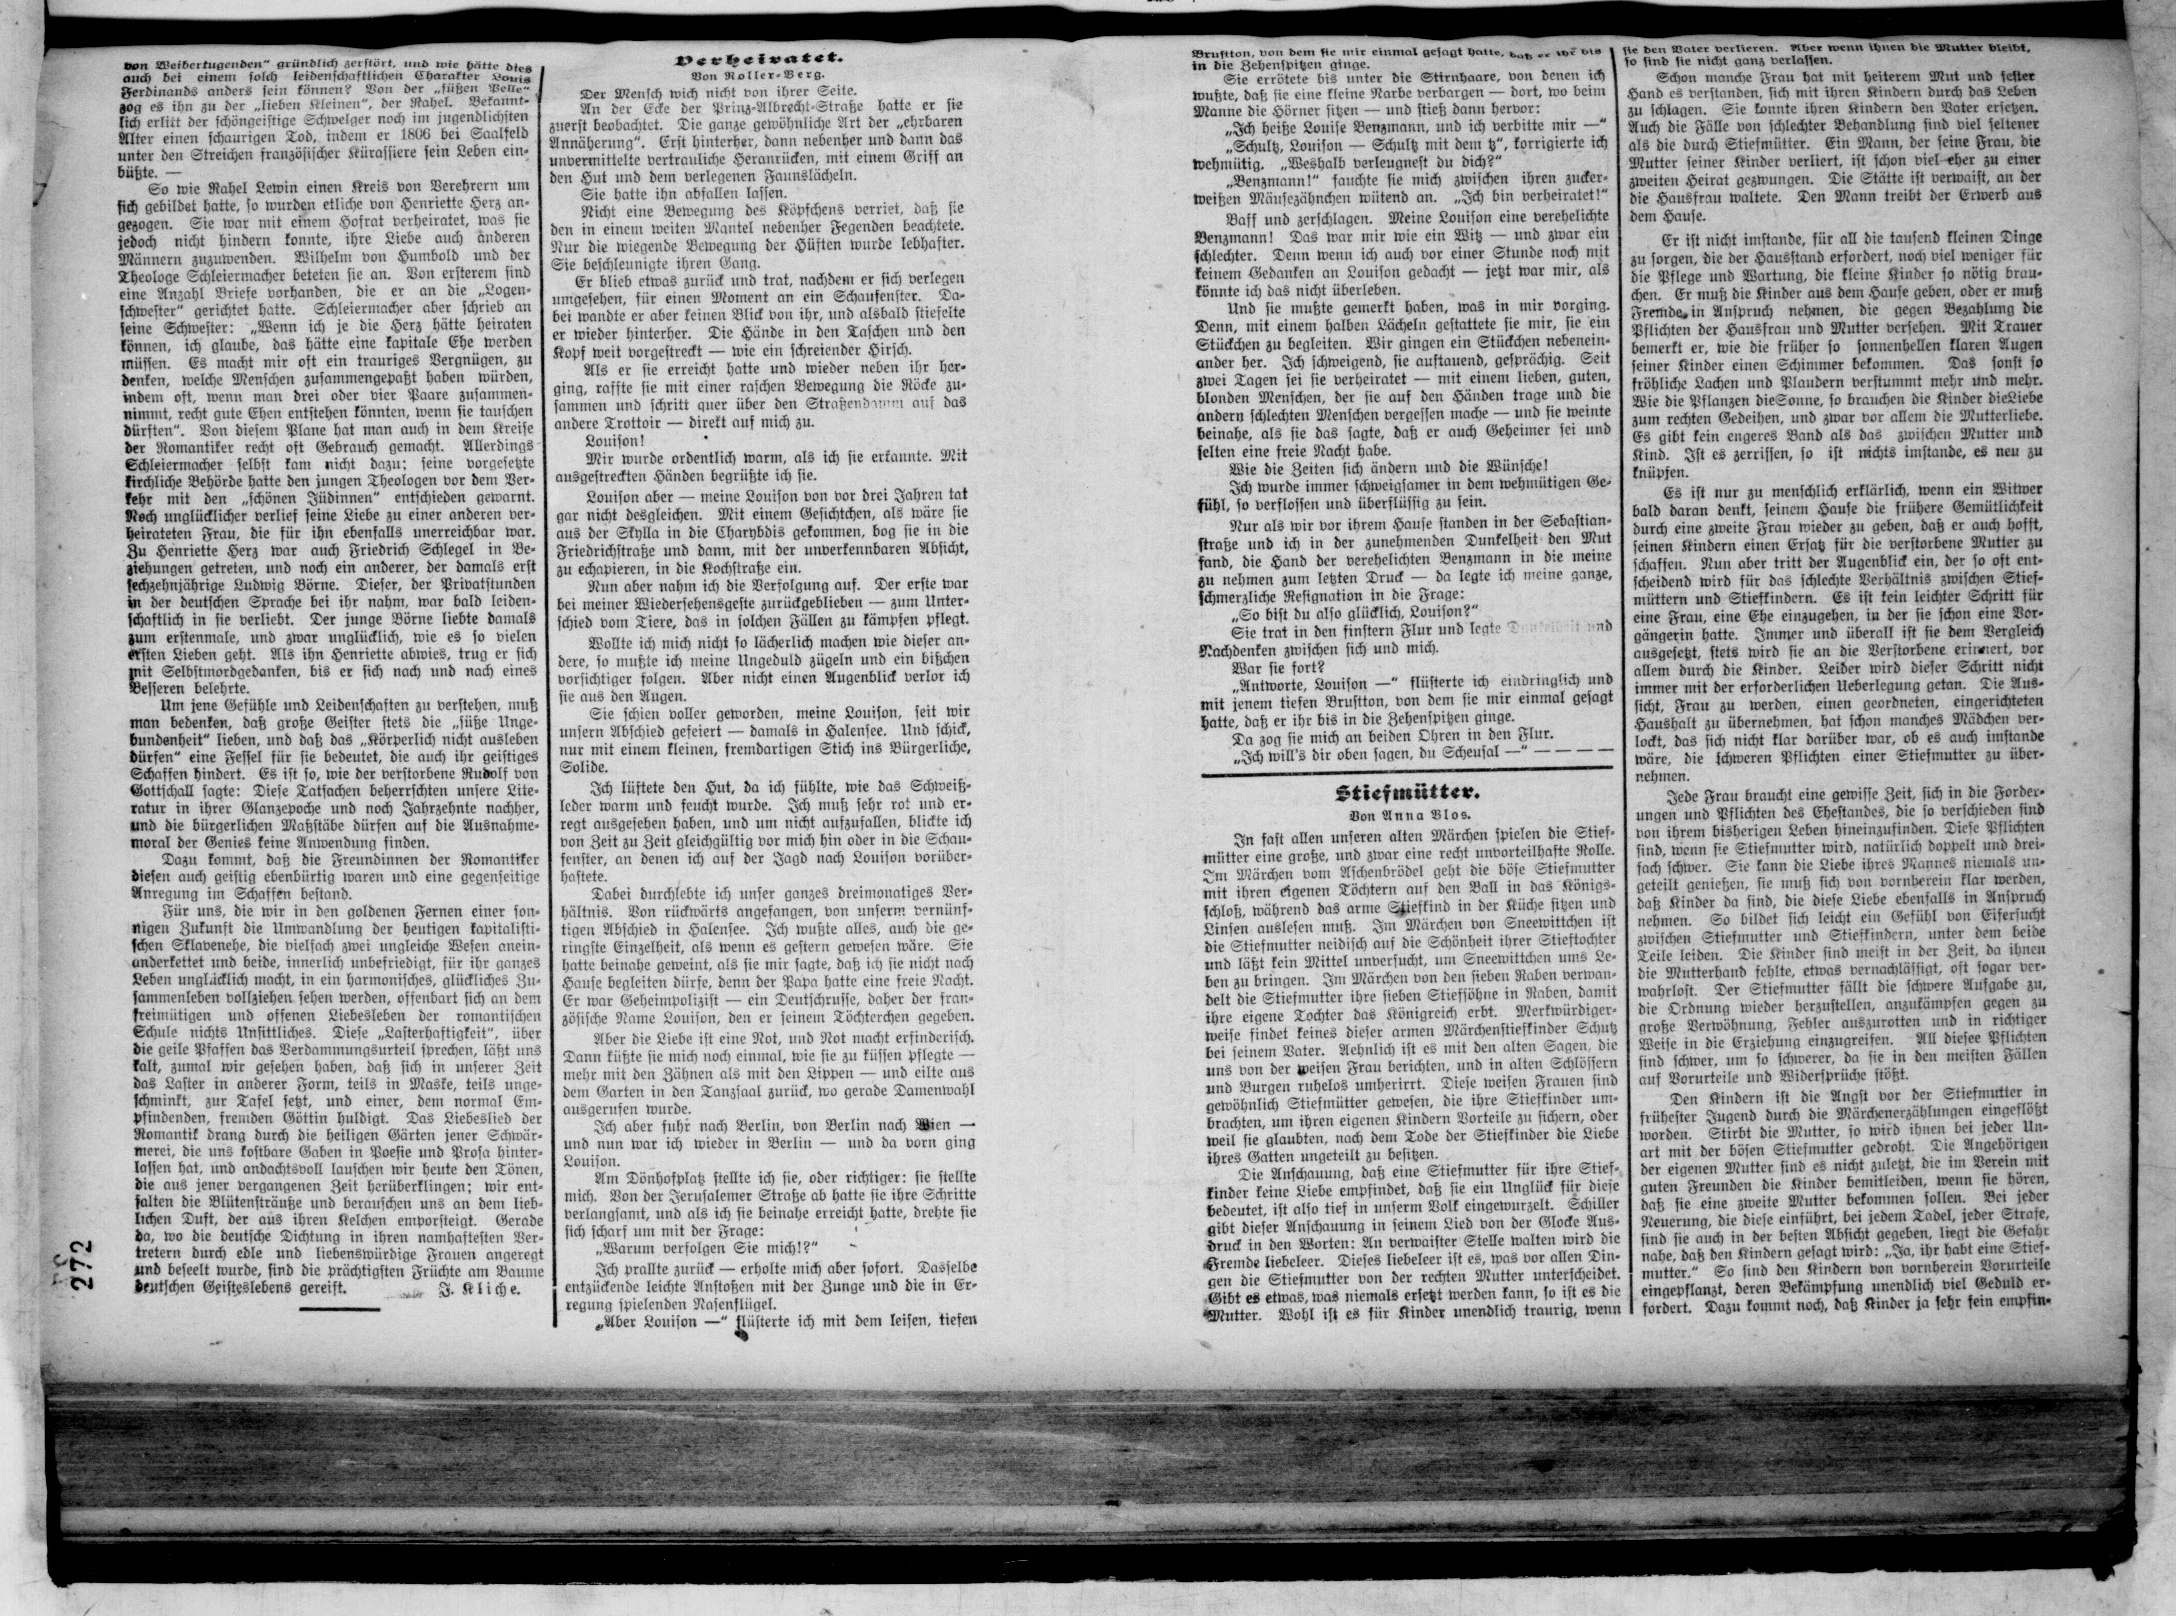 von Weibertugenden“ gründlich zerstört, und wie hätte dies
auch bei einem solch leidenschaftlichen Charakter Louis
Ferdinands anders sein können? Von der „süßen Pelle“
zog es ihn zu der „lieben Kleinen“, der Rahel. Bekannt-
lich erlitt der schöngeistige Schwelger noch im jugendlichsten
Alter einen schaurigen Tod, indem er 1806 bei Saalfeld
unter den Streichen französischer Kürassiere sein Leben ein-
büßte. —
So wie Rahel Lewin einen Kreis von Verehrern um
sich gebildet hatte, so wurden etliche von Henriette Herz an-
gezogen. Sie war mit einem Hofrat verheiratet, was sie
jedoch nicht hindern konnte, ihre Liebe auch anderen
Männern zuzuwenden. Wilhelm von Humbold und der
Theologe Schleiermacher beteten sie an. Von ersterem sind
eine Anzahl Briefe vorhanden, die er an die „Logen-
schwester“ gerichtet hatte. Schleiermacher aber schrieb an
seine Schwester: „Wenn ich je die Herz hätte heiraten
können, ich glaube, das hätte eine kapitale Ehe werden
müssen. Es macht mir oft ein trauriges Vergnügen, zu
denken, welche Menschen zusammengepaßt haben würden,
indem oft, wenn man drei oder vier Paare zusammen-
nimmt, recht gute Ehen entstehen könnten, wenn sie tauschen
dürften“. Von diesem Plane hat man auch in dem Kreise
der Romantiker recht oft Gebrauch gemacht. Allerdings
Schleiermacher selbst kam nicht dazu; seine vorgesetzte
kirchliche Behörde hatte den jungen Theologen vor dem Ver-
kehr mit den „schönen Jüdinnen“ entschieden gewarnt.
Noch unglücklicher verlief seine Liebe zu einer anderen ver-
heirateten Frau, die für ihn ebenfalls unerreichbar war.
Zu Henriette Herz war auch Friedrich Schlegel in Be-
ziehungen getreten, und noch ein anderer, der damals erst
sechzehnjährige Ludwig Börne. Dieser, der Privatstunden
in der deutschen Sprache bei ihr nahm, war bald leiden-
schaftlich in sie verliebt. Der junge Börne liebte damals
zum erstenmale, und zwar unglücklich, wie es so vielen
ersten Lieben geht. Als ihn Henriette abwies, trug er sich
mit Selbstmordgedanken, bis er sich nach und nach eines
Besseren belehrte.
Um jene Gefühle und Leidenschaften zu verstehen, muß
man bedenken, daß große Geister stets die „süße Unge-
bundenheit“ lieben, und daß das „Körperlich nicht ausleben
dürfen“ eine Fessel für sie bedeutet, die auch ihr geistiges
Schaffen hindert. Es ist so, wie der verstorbene Rudolf von
Gottschall sagte: Diese Tatsachen beherrschten unsere Lite-
ratur in ihrer Glanzepoche und noch Jahrzehnte nachher,
und die bürgerlichen Maßstäbe dürfen auf die Ausnahme-
moral der Genies keine Anwendung finden.
Dazu kommt, daß die Freundinnen der Romantiker
diesen auch geistig ebenbürtig waren und eine gegenseitige
Anregung im Schaffen bestand.
Für uns, die wir in den goldenen Fernen einer son-
nigen Zukunft die Umwandlung der heutigen kapitalisti-
schen Sklavenehe, die vielfach zwei ungleiche Wesen anein-
anderkettet und beide, innerlich unbefriedigt, für ihr ganzes
Leben unglücklich macht, in ein harmonisches, glückliches Zu-
sammenleben vollziehen sehen werden, offenbart sich an dem
freimütigen und offenen Liebesleben der romantischen
Schule nichts Unsittliches. Diese „Lasterhaftigkeit“, über
die geile Pfaffen das Verdammungsurteil sprechen, läßt uns
kalt, zumal wir gesehen haben, daß sich in unserer Zeit
das Laster in anderer Form, teils in Maske, teils unge-
schminkt, zur Tafel setzt, und einer, dem normal Em-
pfindenden, fremden Göttin huldigt. Das Liebeslied der
Romantik drang durch die heiligen Gärten jener Schwär-
merei, die uns kostbare Gaben in Poesie und Prosa hinter-
lassen hat, und andachtsvoll lauschen wir heute den Tönen,
die aus jener vergangenen Zeit herüberklingen; wir ent-
falten die Blütensträuße und berauschen uns an dem lieb-
lichen Duft, der aus ihren Kelchen emporsteigt. Gerade
da, wo die deutsche Dichtung in ihren namhaftesten Ver-
tretern durch edle und liebenswürdige Frauen angeregt
und beseelt wurde, sind die prächtigsten Früchte am Baume
deutschen Geisteslebens gereift. J. Kliche.
272
Verheiratet.
Von Roller-Berg.
Der Mensch wich nicht von ihrer Seite.
An der Ecke der Prinz-Albrecht-Straße hatte er sie
zuerst beobachtet. Die ganze gewöhnliche Art der „ehrbaren
Annäherung“. Erst hinterher, dann nebenher und dann das
unvermittelte vertrauliche Heranrücken, mit einem Griff an
den Hut und dem verlegenen Faunslächeln.
Sie hatte ihn abfallen lassen.
Nicht eine Bewegung des Köpfchens verriet, daß sie
den in einem weiten Mantel nebenher Fegenden beachtete.
Nur die wiegende Bewegung der Hüften wurde lebhafter.
Sie beschleunigte ihren Gang.
Er blieb etwas zurück und trat, nachdem er sich verlegen
umgesehen, für einen Moment an ein Schaufenster. Da-
bei wandte er aber keinen Blick von ihr, und alsbald stiefelte
er wieder hinterher. Die Hände in den Taschen und den
Kopf weit vorgestreckt — wie ein schreiender Hirsch.
Als er sie erreicht hatte und wieder neben ihr her-
ging, raffte sie mit einer raschen Bewegung die Röcke zu-
sammen und schritt quer über den Straßendamm auf das
andere Trottoir — direkt auf mich zu.
Louison!
Mir wurde ordentlich warm, als ich sie erkannte. Mit
ausgestreckten Händen begrüßte ich sie.
Louison aber — meine Louison von vor drei Jahren tat
gar nicht desgleichen. Mit einem Gesichtchen, als wäre sie
aus der Skylla in die Charybdis gekommen, bog sie in die
Friedrichstraße und dann, mit der unverkennbaren Absicht,
zu echapieren, in die Kochstraße ein.
Nun aber nahm ich die Verfolgung auf. Der erste war
bei meiner Wiedersehensgeste zurückgeblieben — zum Unter-
schied vom Tiere, das in solchen Fällen zu kämpfen pflegt.
Wollte ich mich nicht so lächerlich machen wie dieser an-
dere, so mußte ich meine Ungeduld zügeln und ein bißchen
vorsichtiger folgen. Aber nicht einen Augenblick verlor ich
sie aus den Augen.
Sie schien voller geworden, meine Louison, seit wir
unsern Abschied gefeiert — damals in Halensee. Und schick,
nur mit einem kleinen, fremdartigen Stich ins Bürgerliche,
Solide.
Ich lüftete den Hut, da ich fühlte, wie das Schweiß-
leder warm und feucht wurde. Ich muß sehr rot und er-
regt ausgesehen haben, und um nicht aufzufallen, blickte ich
von Zeit zu Zeit gleichgültig vor mich hin oder in die Schau-
fenster, an denen ich auf der Jagd nach Louison vorüber-
hastete.
Dabei durchlebte ich unser ganzes dreimonatiges Ver-
hältnis. Von rückwärts angefangen, von unserm vernünf-
tigen Abschied in Halensee. Ich wußte alles, auch die ge-
ringste Einzelheit, als wenn es gestern gewesen wäre. Sie
hatte beinahe geweint, als sie mir sagte, daß ich sie nicht nach
Hause begleiten dürfe, denn der Papa hatte eine freie Nacht.
Er war Geheimpolizist — ein Deutschrusse, daher der fran-
zösische Name Louison, den er seinem Töchterchen gegeben.
Aber die Liebe ist eine Not, und Not macht erfinderisch.
Dann küßte sie mich noch einmal, wie sie zu küssen pflegte —
mehr mit den Zähnen als mit den Lippen — und eilte aus
dem Garten in den Tanzsaal zurück, wo gerade Damenwahl
ausgerufen wurde.
Ich aber fuhr nach Berlin, von Berlin nach Wien —
und nun war ich wieder in Berlin — und da vorn ging
Louison.
Am Dönhofplatz stellte ich sie, oder richtiger: sie stellte
mich. Von der Jerusalemer Straße ab hatte sie ihre Schritte
verlangsamt, und als ich sie beinahe erreicht hatte, drehte sie
sich scharf um mit der Frage:
„Warum verfolgen Sie mich!?“
Ich prallte zurück — erholte mich aber sofort. Dasselbe
entzückende leichte Anstoßen mit der Zunge und die in Er-
regung spielenden Nasenflügel.
„Aber Louison —“ flüsterte ich mit dem leisen, tiefen
Brustton, von dem sie mir einmal gesagt hatte, daß er ihr bis
in die Zehenspitzen ginge.
Sie errötete bis unter die Stirnhaare, von denen ich
wußte, daß sie eine kleine Narbe verbargen — dort, wo beim
Manne die Hörner sitzen — und stieß dann hervor:
„Ich heiße Louise Benzmann, und ich verbitte mir —“
„Schultz, Louison — Schultz mit dem tz“, korrigierte ich
wehmütig. „Weshalb verleugnest du dich?“
„Benzmann!“ fauchte sie mich zwischen ihren zucker-
weißen Mäusezähnchen wütend an. „Ich bin verheiratet!“
Baff und zerschlagen. Meine Louison eine verehelichte
Benzmann! Das war mir wie ein Witz — und zwar ein
schlechter. Denn wenn ich auch vor einer Stunde noch mit
keinem Gedanken an Louison gedacht — jetzt war mir, als
könnte ich das nicht überleben.
Und sie mußte gemerkt haben, was in mir vorging.
Denn, mit einem halben Lächeln gestattete sie mir, sie ein
Stückchen zu begleiten. Wir gingen ein Stückchen nebenein-
ander her. Ich schweigend, sie auftauend, gesprächig. Seit
zwei Tagen sei sie verheiratet — mit einem lieben, guten,
blonden Menschen, der sie auf den Händen trage und die
andern schlechten Menschen vergessen mache — und sie weinte
beinahe, als sie das sagte, daß er auch Geheimer sei und
selten eine freie Nacht habe.
Wie die Zeiten sich ändern und die Wünsche!
Ich wurde immer schweigsamer in dem wehmütigen Ge-
fühl, so verflossen und überflüssig zu sein.
Nur als wir vor ihrem Hause standen in der Sebastian-
straße und ich in der zunehmenden Dunkelheit den Mut
fand, die Hand der verehelichten Benzmann in die meine
zu nehmen zum letzten Druck — da legte ich meine ganze,
schmerzliche Resignation in die Frage:
„So bist du also glücklich, Louison?“
Sie trat in den finstern Flur und legte Dunkelheit und
Nachdenken zwischen sich und mich.
War sie fort?
„Antworte, Louison —“ flüsterte ich eindringlich und
mit jenem tiefen Brustton, von dem sie mir einmal gesagt
hatte, daß er ihr bis in die Zehenspitzen ginge.
Da zog sie mich an beiden Ohren in den Flur.
„Ich will's dir oben sagen, du Scheusal —“ — — — —
Stiefmütter.
Von Anna Blos.
In fast allen unseren alten Märchen spielen die Stief-
mütter eine große, und zwar eine recht unvorteilhafte Rolle.
Im Märchen vom Aschenbrödel geht die böse Stiefmutter
mit ihren eigenen Töchtern auf den Ball in das Königs-
schloß, während das arme Stiefkind in der Küche sitzen und
Linsen auslesen muß. Im Märchen von Sneewittchen ist
die Stiefmutter neidisch auf die Schönheit ihrer Stieftochter
und läßt kein Mittel unversucht, um Sneewittchen ums Le-
ben zu bringen. Im Märchen von den sieben Raben verwan-
delt die Stiefmutter ihre sieben Stiefsöhne in Raben, damit
ihre eigene Tochter das Königreich erbt. Merkwürdiger-
weise findet keines dieser armen Märchenstiefkinder Schutz
bei seinem Vater. Aehnlich ist es mit den alten Sagen, die
uns von der weisen Frau berichten, und in alten Schlössern
und Burgen ruhelos umherirrt. Diese weisen Frauen sind
gewöhnlich Stiefmütter gewesen, die ihre Stiefkinder um-
brachten, um ihren eigenen Kindern Vorteile zu sichern, oder
weil sie glaubten, nach dem Tode der Stiefkinder die Liebe
ihres Gatten ungeteilt zu besitzen.
Die Anschauung, daß eine Stiefmutter für ihre Stief-
kinder keine Liebe empfindet, daß sie ein Unglück für diese
bedeutet, ist also tief in unserm Volk eingewurzelt. Schiller
gibt dieser Anschauung in seinem Lied von der Glocke Aus-
druck in den Worten: An verwaister Stelle walten wird die
Fremde liebeleer. Dieses liebeleer ist es, was vor allen Din-
gen die Stiefmutter von der rechten Mutter unterscheidet.
Gibt es etwas, was niemals ersetzt werden kann, so ist es die
Mutter. Wohl ist es für Kinder unendlich traurig, wenn
sie den Vater verlieren. Aber wenn ihnen die Mutter bleibt,
so sind sie nicht ganz verlassen.
Schon manche Frau hat mit heiterem Mut und fester
Hand es verstanden, sich mit ihren Kindern durch das Leben
zu schlagen. Sie konnte ihren Kindern den Vater ersetzen.
Auch die Fälle von schlechter Behandlung sind viel seltener
als die durch Stiefmütter. Ein Mann, der seine Frau, die
Mutter seiner Kinder verliert, ist schon viel eher zu einer
zweiten Heirat gezwungen. Die Stätte ist verwaist, an der
die Hausfrau waltete. Den Mann treibt der Erwerb aus
dem Hause.
Er ist nicht imstande, für all die tausend kleinen Dinge
zu sorgen, die der Hausstand erfordert, noch viel weniger für
die Pflege und Wartung, die kleine Kinder so nötig brau-
chen. Er muß die Kinder aus dem Hause geben, oder er muß
Fremde in Anspruch nehmen, die gegen Bezahlung die
Pflichten der Hausfrau und Mutter versehen. Mit Trauer
bemerkt er, wie die früher so sonnenhellen klaren Augen
seiner Kinder einen Schimmer bekommen. Das sonst so
fröhliche Lachen und Plaudern verstummt mehr und mehr.
Wie die Pflanzen dieSonne, so brauchen die Kinder dieLiebe
zum rechten Gedeihen, und zwar vor allem die Mutterliebe.
Es gibt kein engeres Band als das zwischen Mutter und
Kind. Ist es zerrissen, so ist nichts imstande, es neu zu
knüpfen.
Es ist nur zu menschlich erklärlich, wenn ein Witwer
bald daran denkt, seinem Hause die frühere Gemütlichkeit
durch eine zweite Frau wieder zu geben, daß er auch hofft,
seinen Kindern einen Ersatz für die verstorbene Mutter zu
schaffen. Nun aber tritt der Augenblick ein, der so oft ent-
scheidend wird für das schlechte Verhältnis zwischen Stief-
müttern und Stiefkindern. Es ist kein leichter Schritt für
eine Frau, eine Ehe einzugehen, in der sie schon eine Vor-
gängerin hatte. Immer und überall ist sie dem Vergleich
ausgesetzt, stets wird sie an die Verstorbene erinnert, vor
allem durch die Kinder. Leider wird dieser Schritt nicht
immer mit der erforderlichen Ueberlegung getan. Die Aus-
sicht, Frau zu werden, einen geordneten, eingerichteten
Haushalt zu übernehmen, hat schon manches Mädchen ver-
lockt, das sich nicht klar darüber war, ob es auch imstande
wäre, die schweren Pflichten einer Stiefmutter zu über-
nehmen.
Jede Frau braucht eine gewisse Zeit, sich in die Forder-
ungen und Pflichten des Ehestandes, die so verschieden sind
von ihrem bisherigen Leben hineinzufinden. Diese Pflichten
sind, wenn sie Stiefmutter wird, natürlich doppelt und drei-
fach schwer. Sie kann die Liebe ihres Mannes niemals un-
geteilt genießen, sie muß sich von vornherein klar werden,
daß Kinder da sind, die diese Liebe ebenfalls in Anspruch
nehmen. So bildet sich leicht ein Gefühl von Eifersucht
zwischen Stiefmutter und Stiefkindern, unter dem beide
Teile leiden. Die Kinder sind meist in der Zeit, da ihnen
die Mutterhand fehlte, etwas vernachlässigt, oft sogar ver-
wahrlost. Der Stiefmutter fällt die schwere Aufgabe zu,
die Ordnung wieder herzustellen, anzukämpfen gegen zu
große Verwöhnung, Fehler auszurotten und in richtiger
Weise in die Erziehung einzugreifen. All diesee Pflichten
sind schwer, um so schwerer, da sie in den meisten Fällen
auf Vorurteile und Widersprüche stößt.
Den Kindern ist die Angst vor der Stiefmutter in
frühester Jugend durch die Märchenerzählungen eingeflößt
worden. Stirbt die Mutter, so wird ihnen bei jeder Un-
art mit der bösen Stiefmutter gedroht. Die Angehörigen
der eigenen Mutter sind es nicht zuletzt, die im Verein mit
guten Freunden die Kinder bemitleiden, wenn sie hören,
daß sie eine zweite Mutter bekommen sollen. Bei jeder
Neuerung, die diese einführt, bei jedem Tadel, jeder Strafe,
sind sie auch in der besten Absicht gegeben, liegt die Gefahr
nahe, daß den Kindern gesagt wird: „Ja, ihr habt eine Stief-
mutter.“ So sind den Kindern von vornherein Vorurteile
eingepflanzt, deren Bekämpfung unendlich viel Geduld er-
fordert. Dazu kommt noch, daß Kinder ja sehr fein empfin-